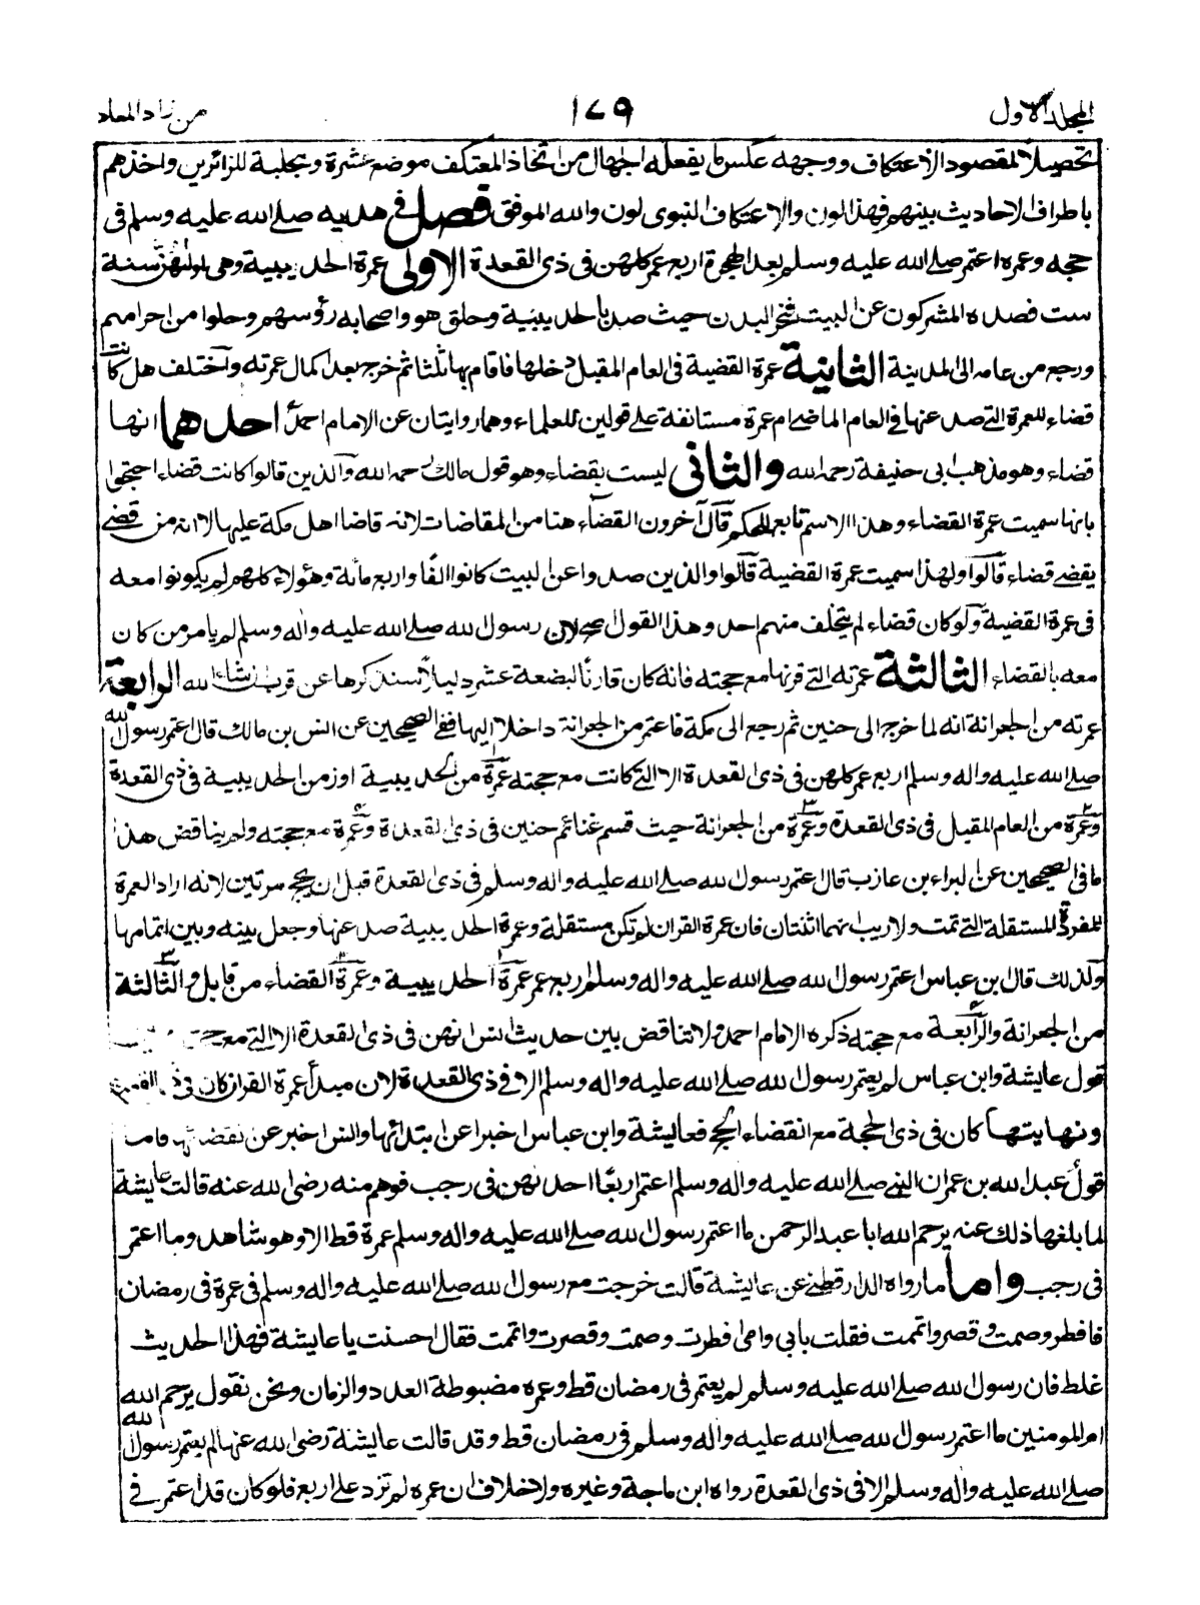 المجلد الاول
١٧٩
من زاد المعاد
تحصيلا لمقصود الاعتكاف وروحه عكس ما يفعله الجهال من اتخاذ المعتكف موضع عشرة ومجلبة للزائرين واخذهم
باطراف الاحاديث بينهم فهذا لون والاعتكاف النبوى لون والله الموفق فصل فى هديه صلى الله عليه وسلم فى
حجه وعمره اعتمر صلى الله عليه وسلم بعد الهجرة اربع عمر كلهن فى ذى القعدة الاولى عمرة الحديبية وهى اولهن سنة
ست فصده المشركون عن البيت فنحر البدن حيث صد بالحديبية وحلق هو واصحابه رؤسهم وحلوا من احرامهم
ورجع من عامه الى المدينة الثانية عمرة القضية فى العام المقبل دخلها فاقام بها ثلثا ثم خرج بعد اكمال عمرته واختلف هل كانت
قضاء للعمرة التى صد عنها فى العام الماضى ام عمرة مستانفة على قولين للعلماء وهما روايتان عن الامام احمد احدهما انها
قضاء وهو مذهب ابى حنيفة رحمه الله والثانى ليست بقضاء وهو قول مالك رحمه الله والذين قالوا كانت قضاء احتجوا
بانها سميت عمرة القضاء وهذا الاسم تابع للحكم قال آخرون القضاء هنا من المقاضات لانه قاضا اهل مكة عليها لا انه من قضى
يقضى قضاء قالوا ولهذا سميت عمرة القضية قالوا والذين صدوا عن البيت كانوا الفا واربع مائة وهؤلاء كلهم لم يكونوا معه
فى عمرة القضية ولو كان قضاء لم يتخلف منهم احد وهذا القول اصح لان رسول الله صلى الله عليه واله وسلم لم يامر من كان
معه بالقضاء الثالثة عمرته التى قرنها مع حجته فانه كان قارنا لبضعة عشر دليلا سنذكرها عن قريب انشاء الله الرابعة
عمرته من الجعرانة انه لما خرج الى حنين ثم رجع الى مكة فاعتمر من الجعرانة داخلا اليها ففى الصحيحين عن انس بن مالك قال اعتمر رسول الله
صلى الله عليه واله وسلم اربع عمر كلهن فى ذى القعدة الا التى كانت مع حجته عمرة من الحديبية او زمن الحديبية فى ذى القعدة
وعمرة من العام المقبل فى ذى القعدة وعمرة من الجعرانة حيث قسم غنائم حنين فى ذى القعدة وعمرة مع حجته ولم يناقض هذا
ما فى الصحيحين عن البراء بن عازب قال اعتمر رسول الله صلى الله عليه واله وسلم فى ذى القعدة قبل ان يحج مرتين لانه اراد العمرة
المفردة المستقلة التى تمت ولا ريب انهما اثنتان فان عمرة القران لم تكن مستقلة وعمرة الحديبية صد عنها وجعل بينه وبين اتمامها
وكذلك قال ابن عباس اعتمر رسول الله صلى الله عليه واله وسلم اربع عمر عمرة الحديبية وعمرة القضاء من قابل والثالثة
من الجعرانة والرابعة مع حجته ذكره الامام احمد ولا تناقض بين حديث انس انهن فى ذى القعدة الا التى مع حجته
قول عايشة وابن عباس لم يعتمر رسول الله صلى الله عليه واله وسلم الا فى ذى القعدة لان مبدأ عمرة القران كان فى ذى القعدة
ونهايتها كان فى ذى الحجة مع انقضاء الحج فعايشة وابن عباس اخبرا عن ابتدائها وانس اخبر عن انقضائها فاما
قول عبد الله بن عمر ان النبى صلى الله عليه واله وسلم اعتمر اربعا احدهن فى رجب فوهم منه رضى الله عنه قالت عايشة
لما بلغها ذلك عنه يرحم الله ابا عبد الرحمن ما اعتمر رسول الله صلى الله عليه واله وسلم عمرة قط الا وهو شاهد وما اعتمر
فى رجب واما ما رواه الدارقطنى عن عايشة قالت خرجت مع رسول الله صلى الله عليه واله وسلم فى عمرة فى رمضان
فافطر وصمت وقصر واتممت فقلت بابى وامى افطرت وصمت وقصرت واتممت فقال احسنت يا عايشة فهذا الحديث
غلط فان رسول الله صلى الله عليه وسلم لم يعتمر فى رمضان قط وعمره مضبوطة العدد والزمان ونحن نقول يرحم الله
ام المومنين ما اعتمر رسول الله صلى الله عليه واله وسلم فى رمضان قط وقد قالت عايشة رضى الله عنها لم يعتمر رسول الله
صلى الله عليه واله وسلم الا فى ذى القعدة رواه ابن ماجة وغيره ولا خلاف ان عمره لم تزد على اربع فلو كان قد اعتمر فى